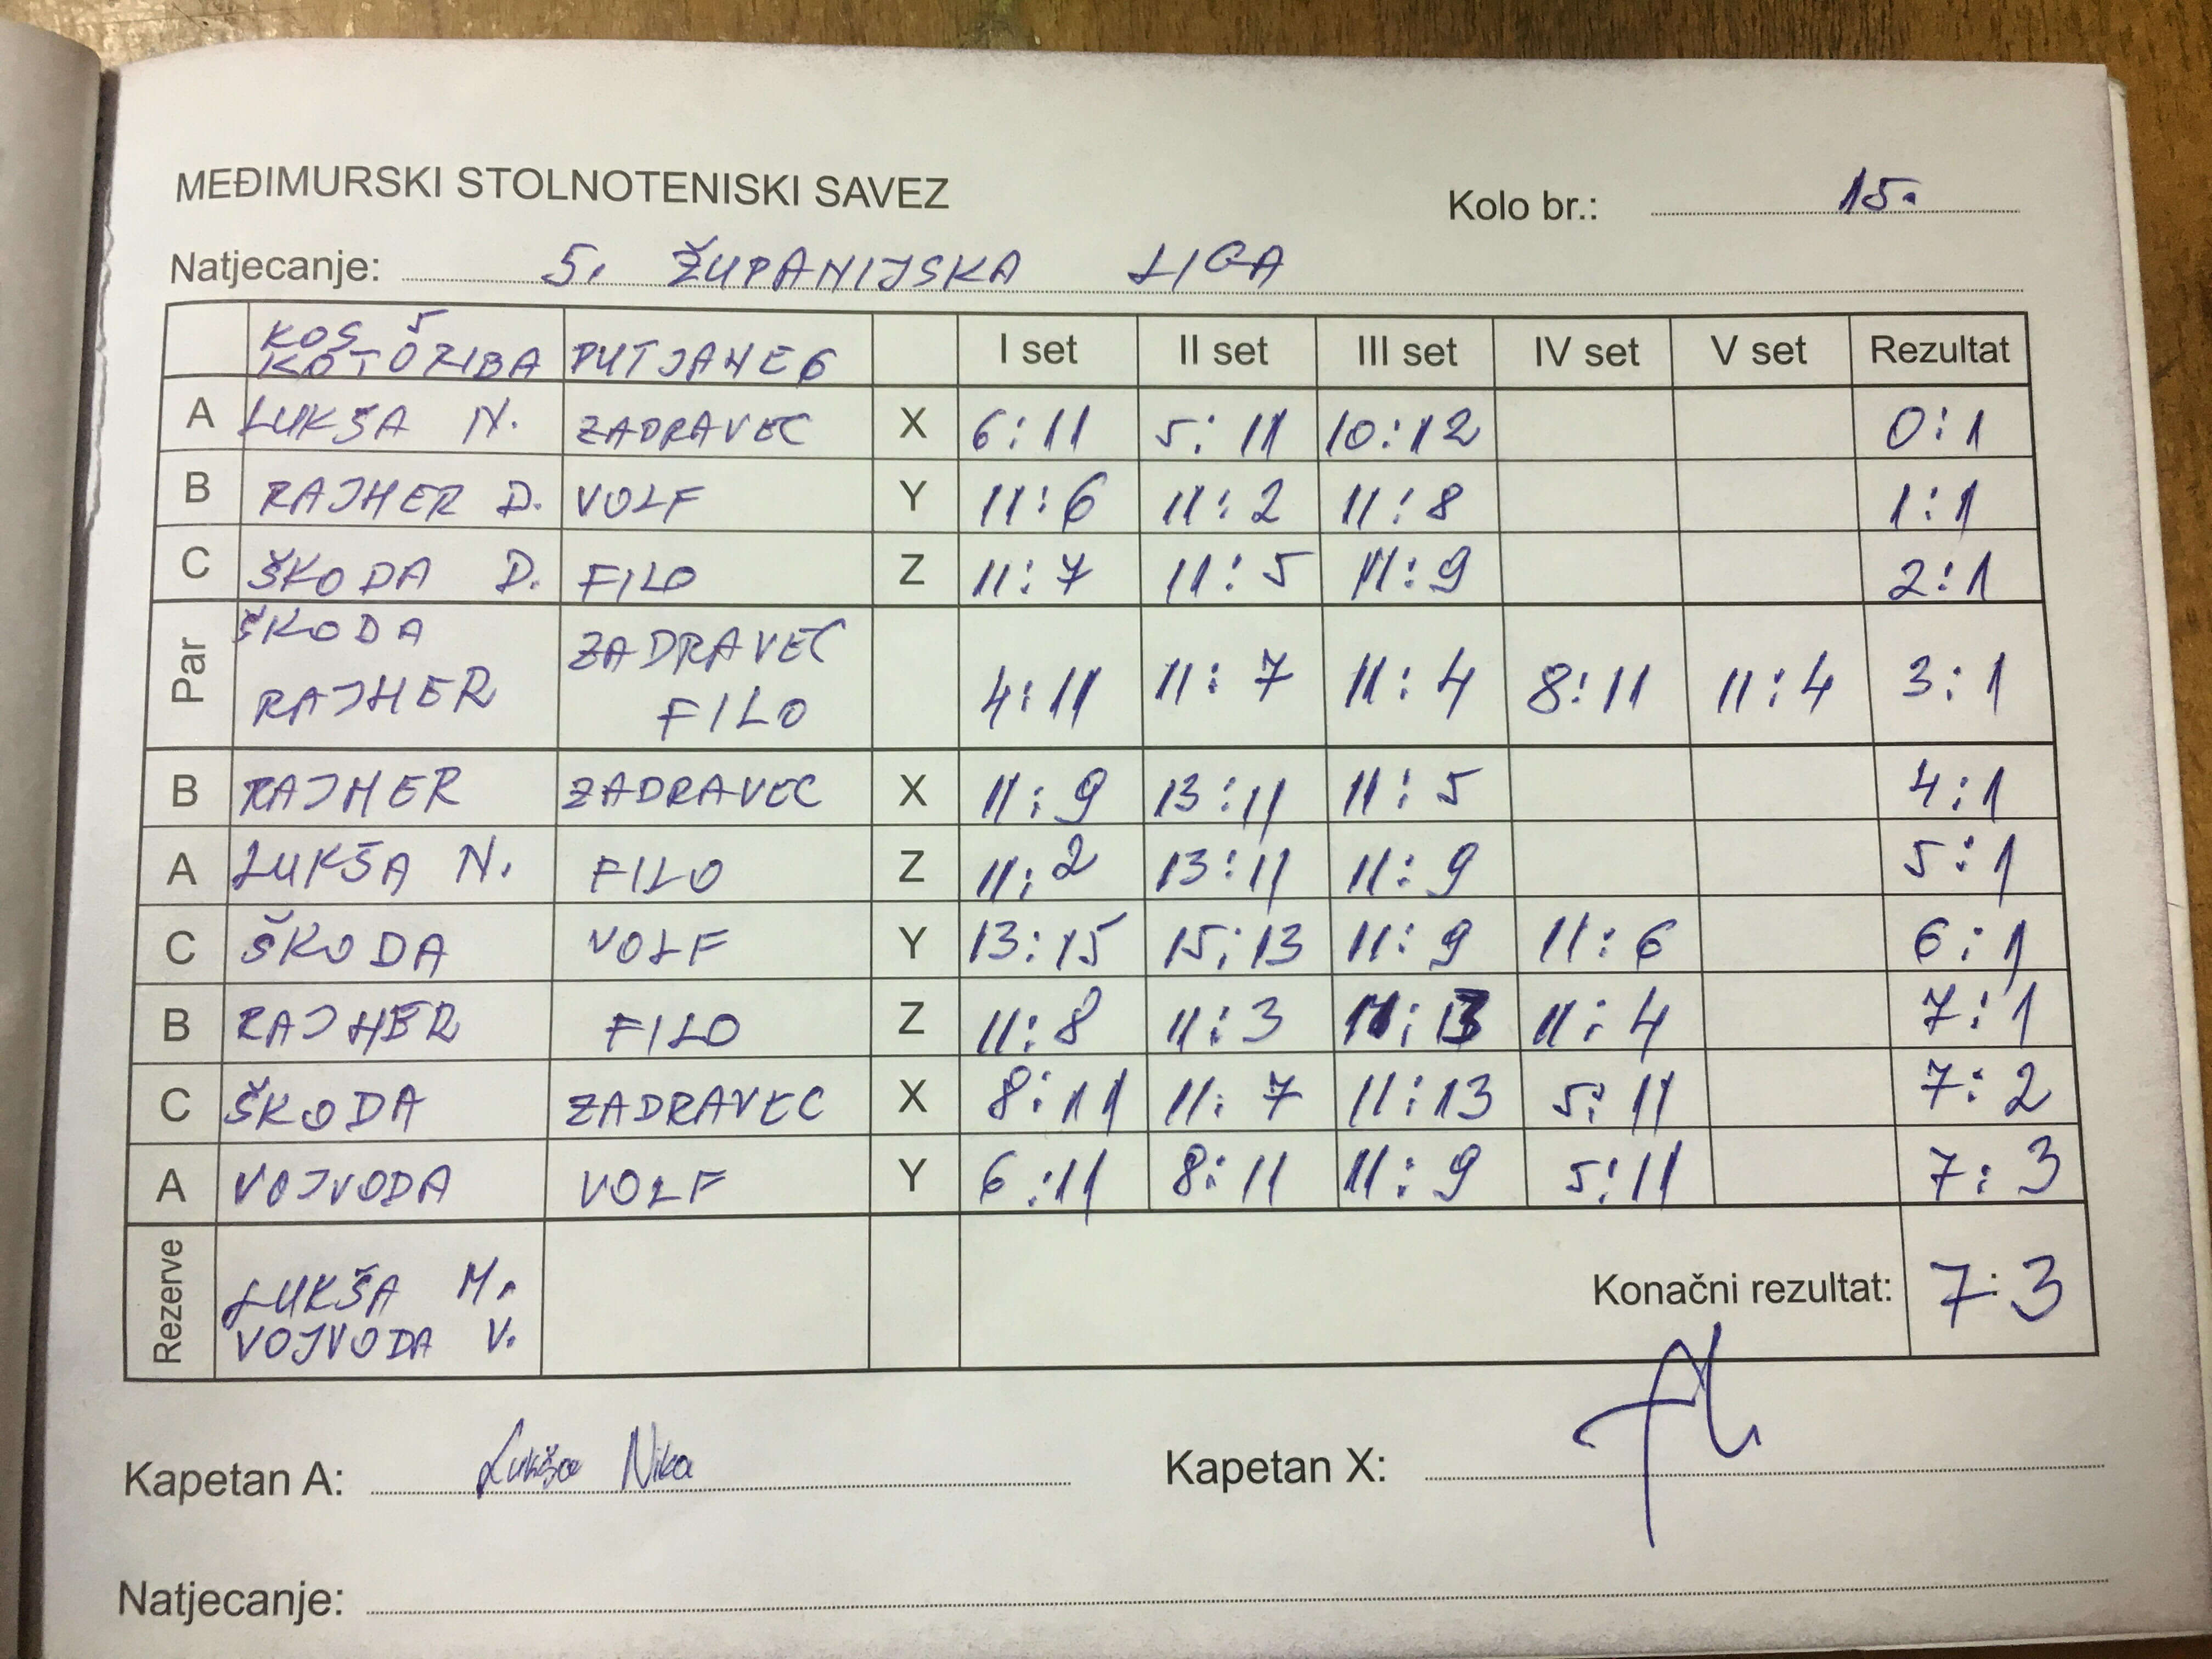 MEĐIMURSKI STOLNOTENISKI SAVEZ Kolo br.: 15.
Natjecanje: 5. ŽUPANIJSKA LIGA
KOS 5 KOTORIBA PUTJANE 6 I set II set III set IV set V set Rezultat
A LUKŠA N. ZADRAVEC X 6:11 5:11 10:12 0:1
B RAJHER D. VOLF Y 11:6 11:2 11:8 1:1
C ŠKODA D. FILO Z 11:7 11:5 11:9 2:1
Par ŠKODA RAJHER ZADRAVEC FILO 4:11 11:7 11:4 8:11 11:4 3:1
B RAJHER ZADRAVEC X 11:9 13:11 11:5 4:1
A LUKŠA N. FILO Z 11:2 13:11 11:9 5:1
C ŠKODA VOLF Y 13:15 15:13 11:9 11:6 6:1
B RAJHER FILO Z 11:8 11:3 11:13 11:4 7:1
C ŠKODA ZADRAVEC X 8:11 11:7 11:13 5:11 7:2
A VOJVODA VOLF Y 6:11 8:11 11:9 5:11 7:3
Rezerve LUKŠA M. VOJVODA V. Konačni rezultat: 7:3
Kapetan A: Lukša Nika Kapetan X:
Natjecanje: